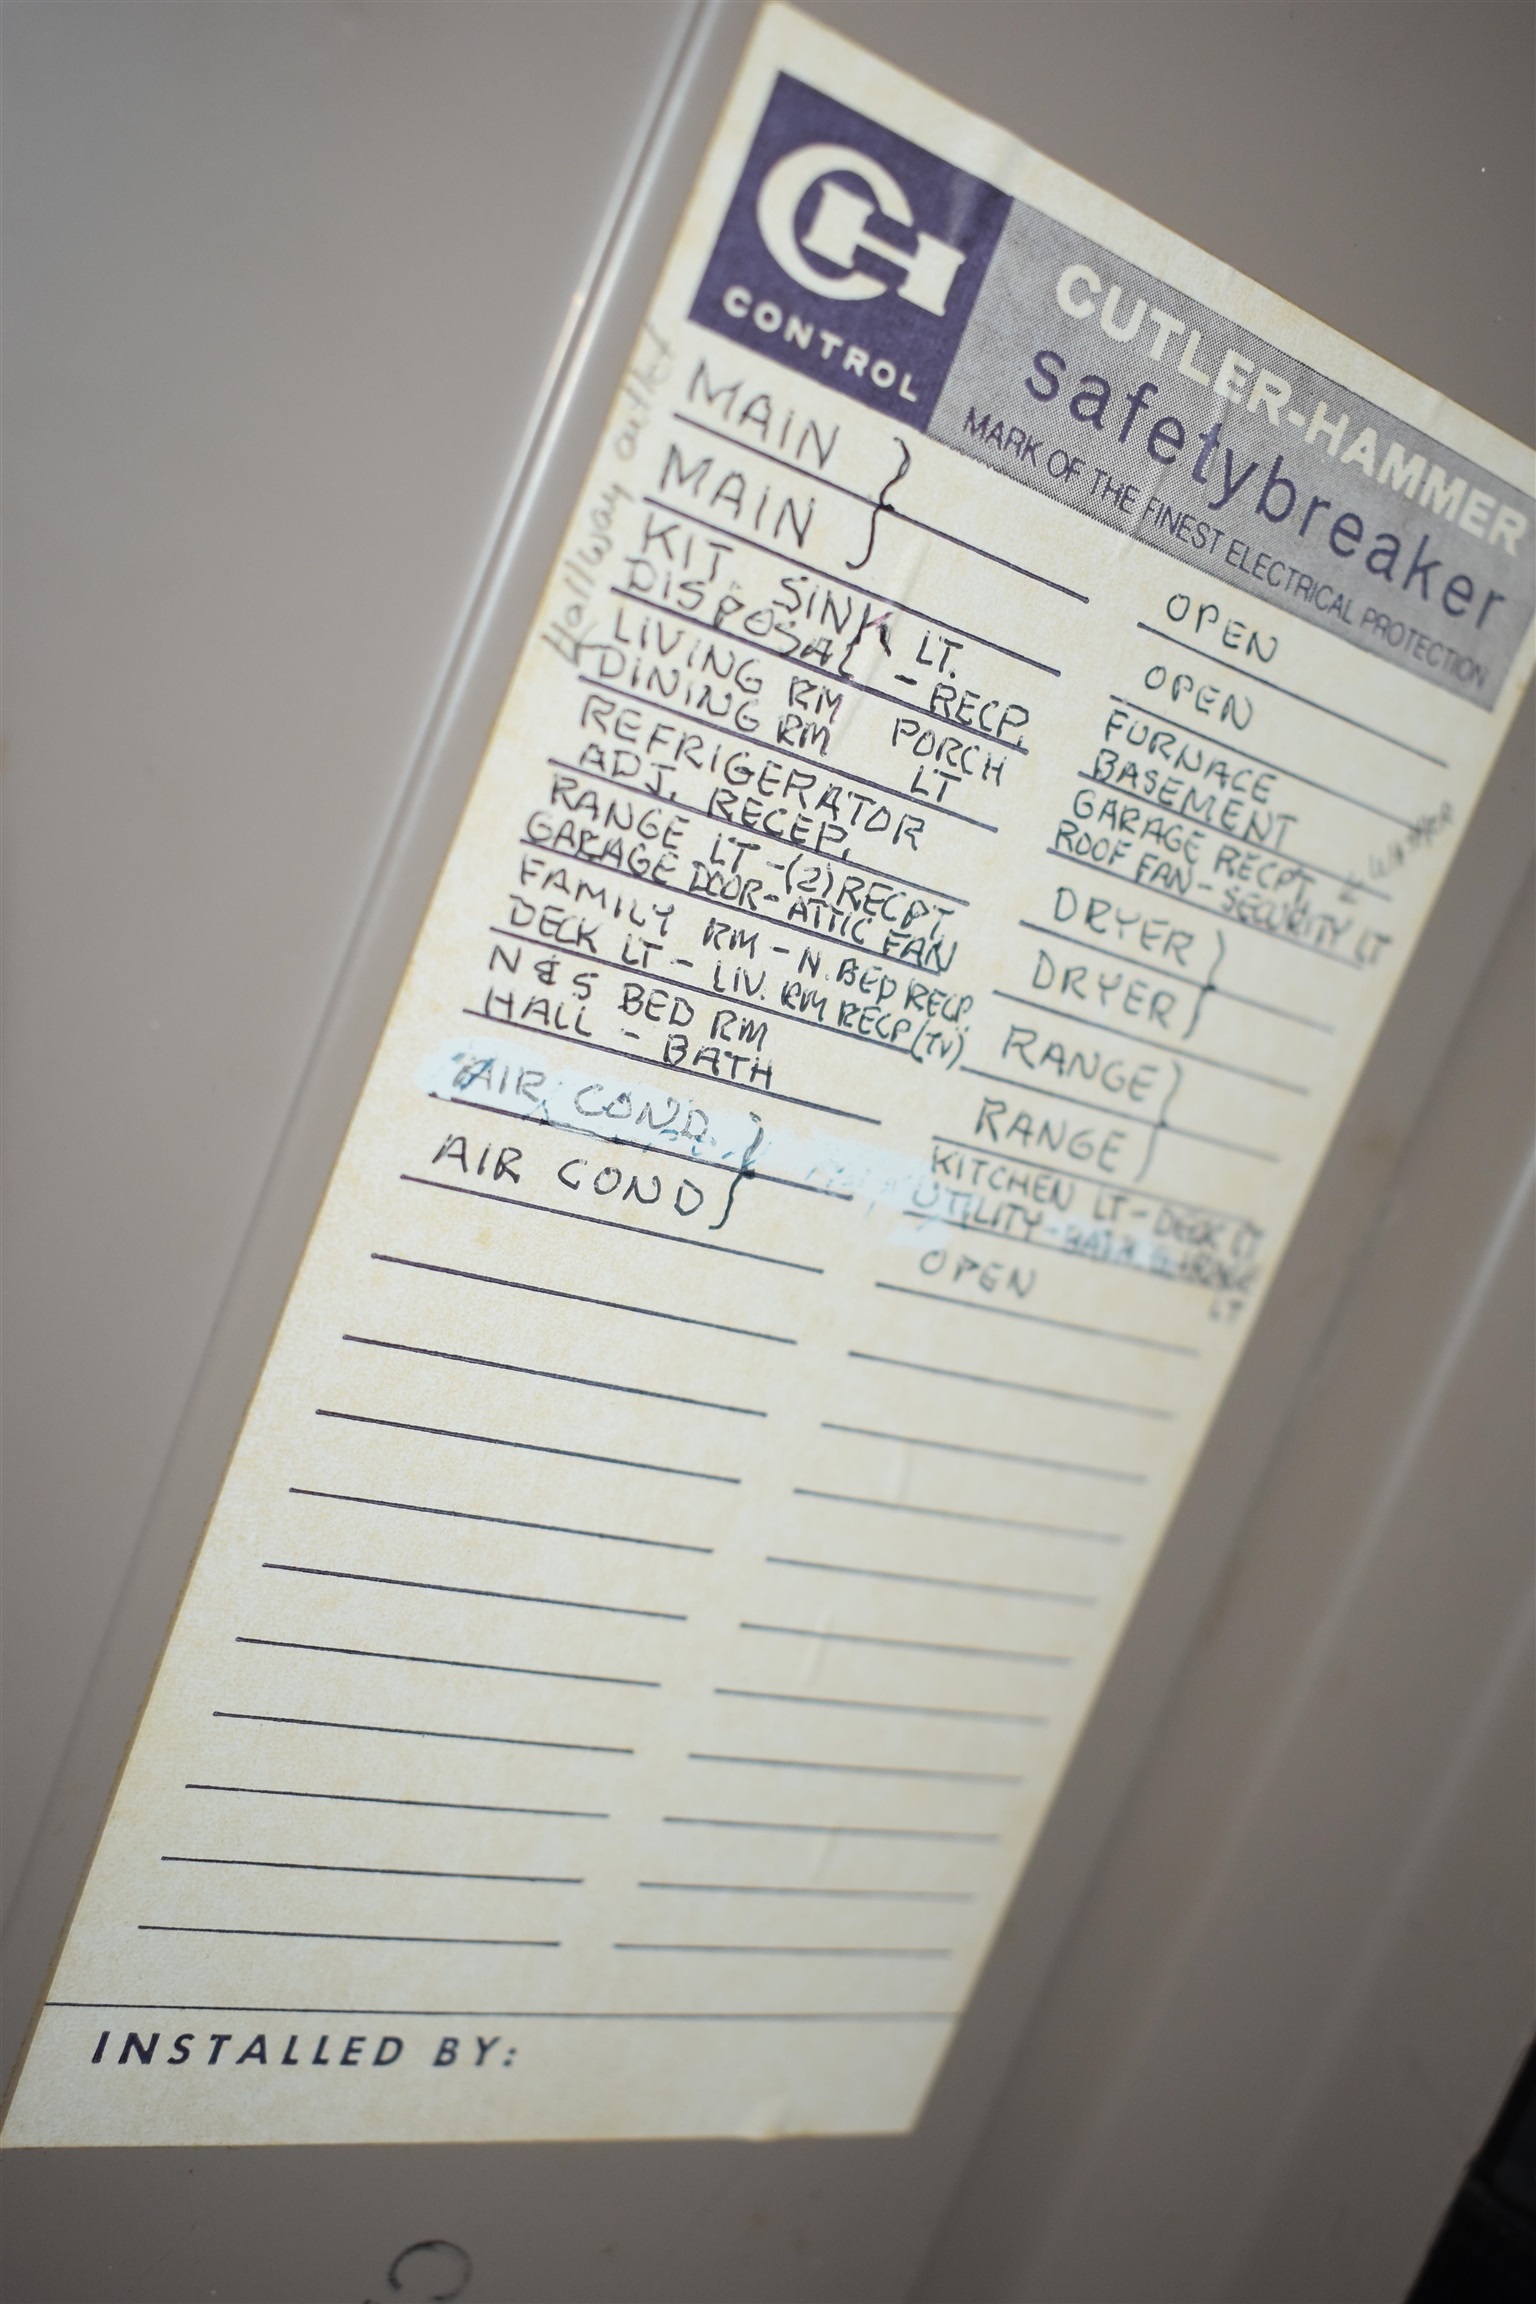 CH
CONTROL
CUTLER-HAMMER
safetybreaker
MARK OF THE FINEST ELECTRICAL PROTECTION
Hallway outlet
MAIN
MAIN
KIT. SINK LT.
DISPOSAL - RECP.
LIVING RM PORCH
DINING RM LT
REFRIGERATOR
ADJ. RECEP.
RANGE LT -(2) RECPT
GARAGE DOOR - ATTIC FAN
FAMILY RM - N. BED RECP.
DECK LT - LIV. RM RECP (TV)
N & S BED RM
HALL - BATH
AIR COND.
AIR COND
OPEN
OPEN
FURNACE
BASEMENT
GARAGE RECPT
ROOF FAN - SECURITY LT
DRYER
DRYER
RANGE
RANGE
KITCHEN LT - DECK LT
UTILITY - BATH
LT
OPEN
INSTALLED BY:
C